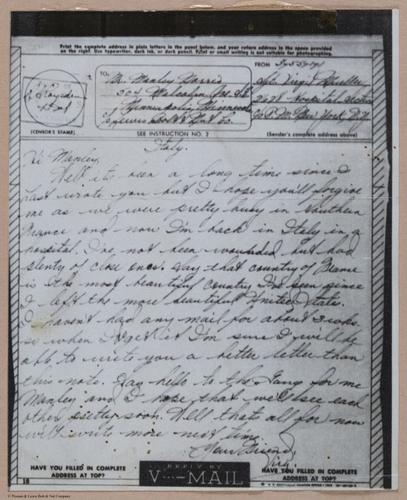 Print the complete address in plain letters in the panel below, and your return address in the space provided
on the right. Use typewriter, dark ink, or dark pencil. Faint or small writing is not suitable for photographing.
TO:
Mr. Manley Harris
304
Minneapolis
FROM
Hospital Section
New York, N.Y.
(CENSOR'S STAMP)
SEE INSTRUCTION NO. 2
(Sender's complete address above)
Italy.
Hi Manley,
Well it's been a long time since I
last wrote you but I hope you'll forgive
me as we were pretty busy in Southern
France and now I'm back in Italy in a
hospital. I've not been wounded but had
plenty of close ones. Say that country of France
is the most beautiful country I've seen since
I left the more beautiful United States.
I haven't had any mail for about 3 wks.
so when I get it I'm sure I will be
able to write you a better letter than
this note. Say hello to the Gang for me
Manley and I hope that we'll see each
other pretty soon. Well that's all for now
will write more next time.
Your Friend,
HAVE YOU FILLED IN COMPLETE
ADDRESS AT TOP?
REPLY BY
V···–MAIL
HAVE YOU FILLED IN COMPLETE
ADDRESS AT TOP?
18